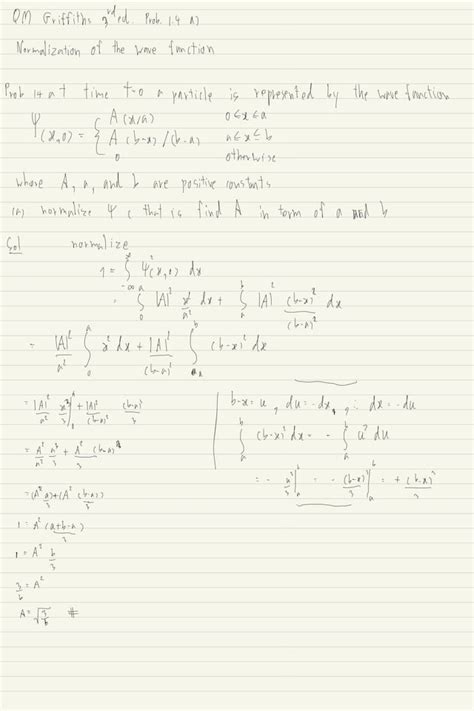 QM Griffiths 3rd ed. Prob. 1.4 a)
Normalization of the wave function
Prob 1.4 at time t=0 a particle is represented by the wave function
Ψ(x,0) = { A(x/a) 0≤x≤a
A(b-x)/(b-a) a≤x≤b
0 otherwise
where A, a, and b are positive constants
(a) normalize Ψ ( that is find A in term of a and b
Sol normalize
1 = ∫_{-∞}^{∞} Ψ²(x,0) dx
= ∫_0^a |A|² x²/a² dx + ∫_a^b |A|² (b-x)²/(b-a)² dx
= |A|²/a² ∫_0^a x² dx + |A|²/(b-a)² ∫_a^b (b-x)² dx
= |A|²/a² x³/3 |_0^a + |A|²/(b-a)² (b-a)³/3
= A²/a² a³/3 + A²/(b-a)² (b-a)³/3
= (A² a)/3 + (A² (b-a))/3
1 = A² (a+b-a)/3
1 = A² b/3
3/b = A²
A = √(3/b) #
b-x = u, du = -dx, ∴ dx = -du
∫_a^b (b-x)² dx = - ∫_a^b u² du
= - u³/3 |_a^b = - (b-x)³/3 |_a^b = + (b-a)³/3